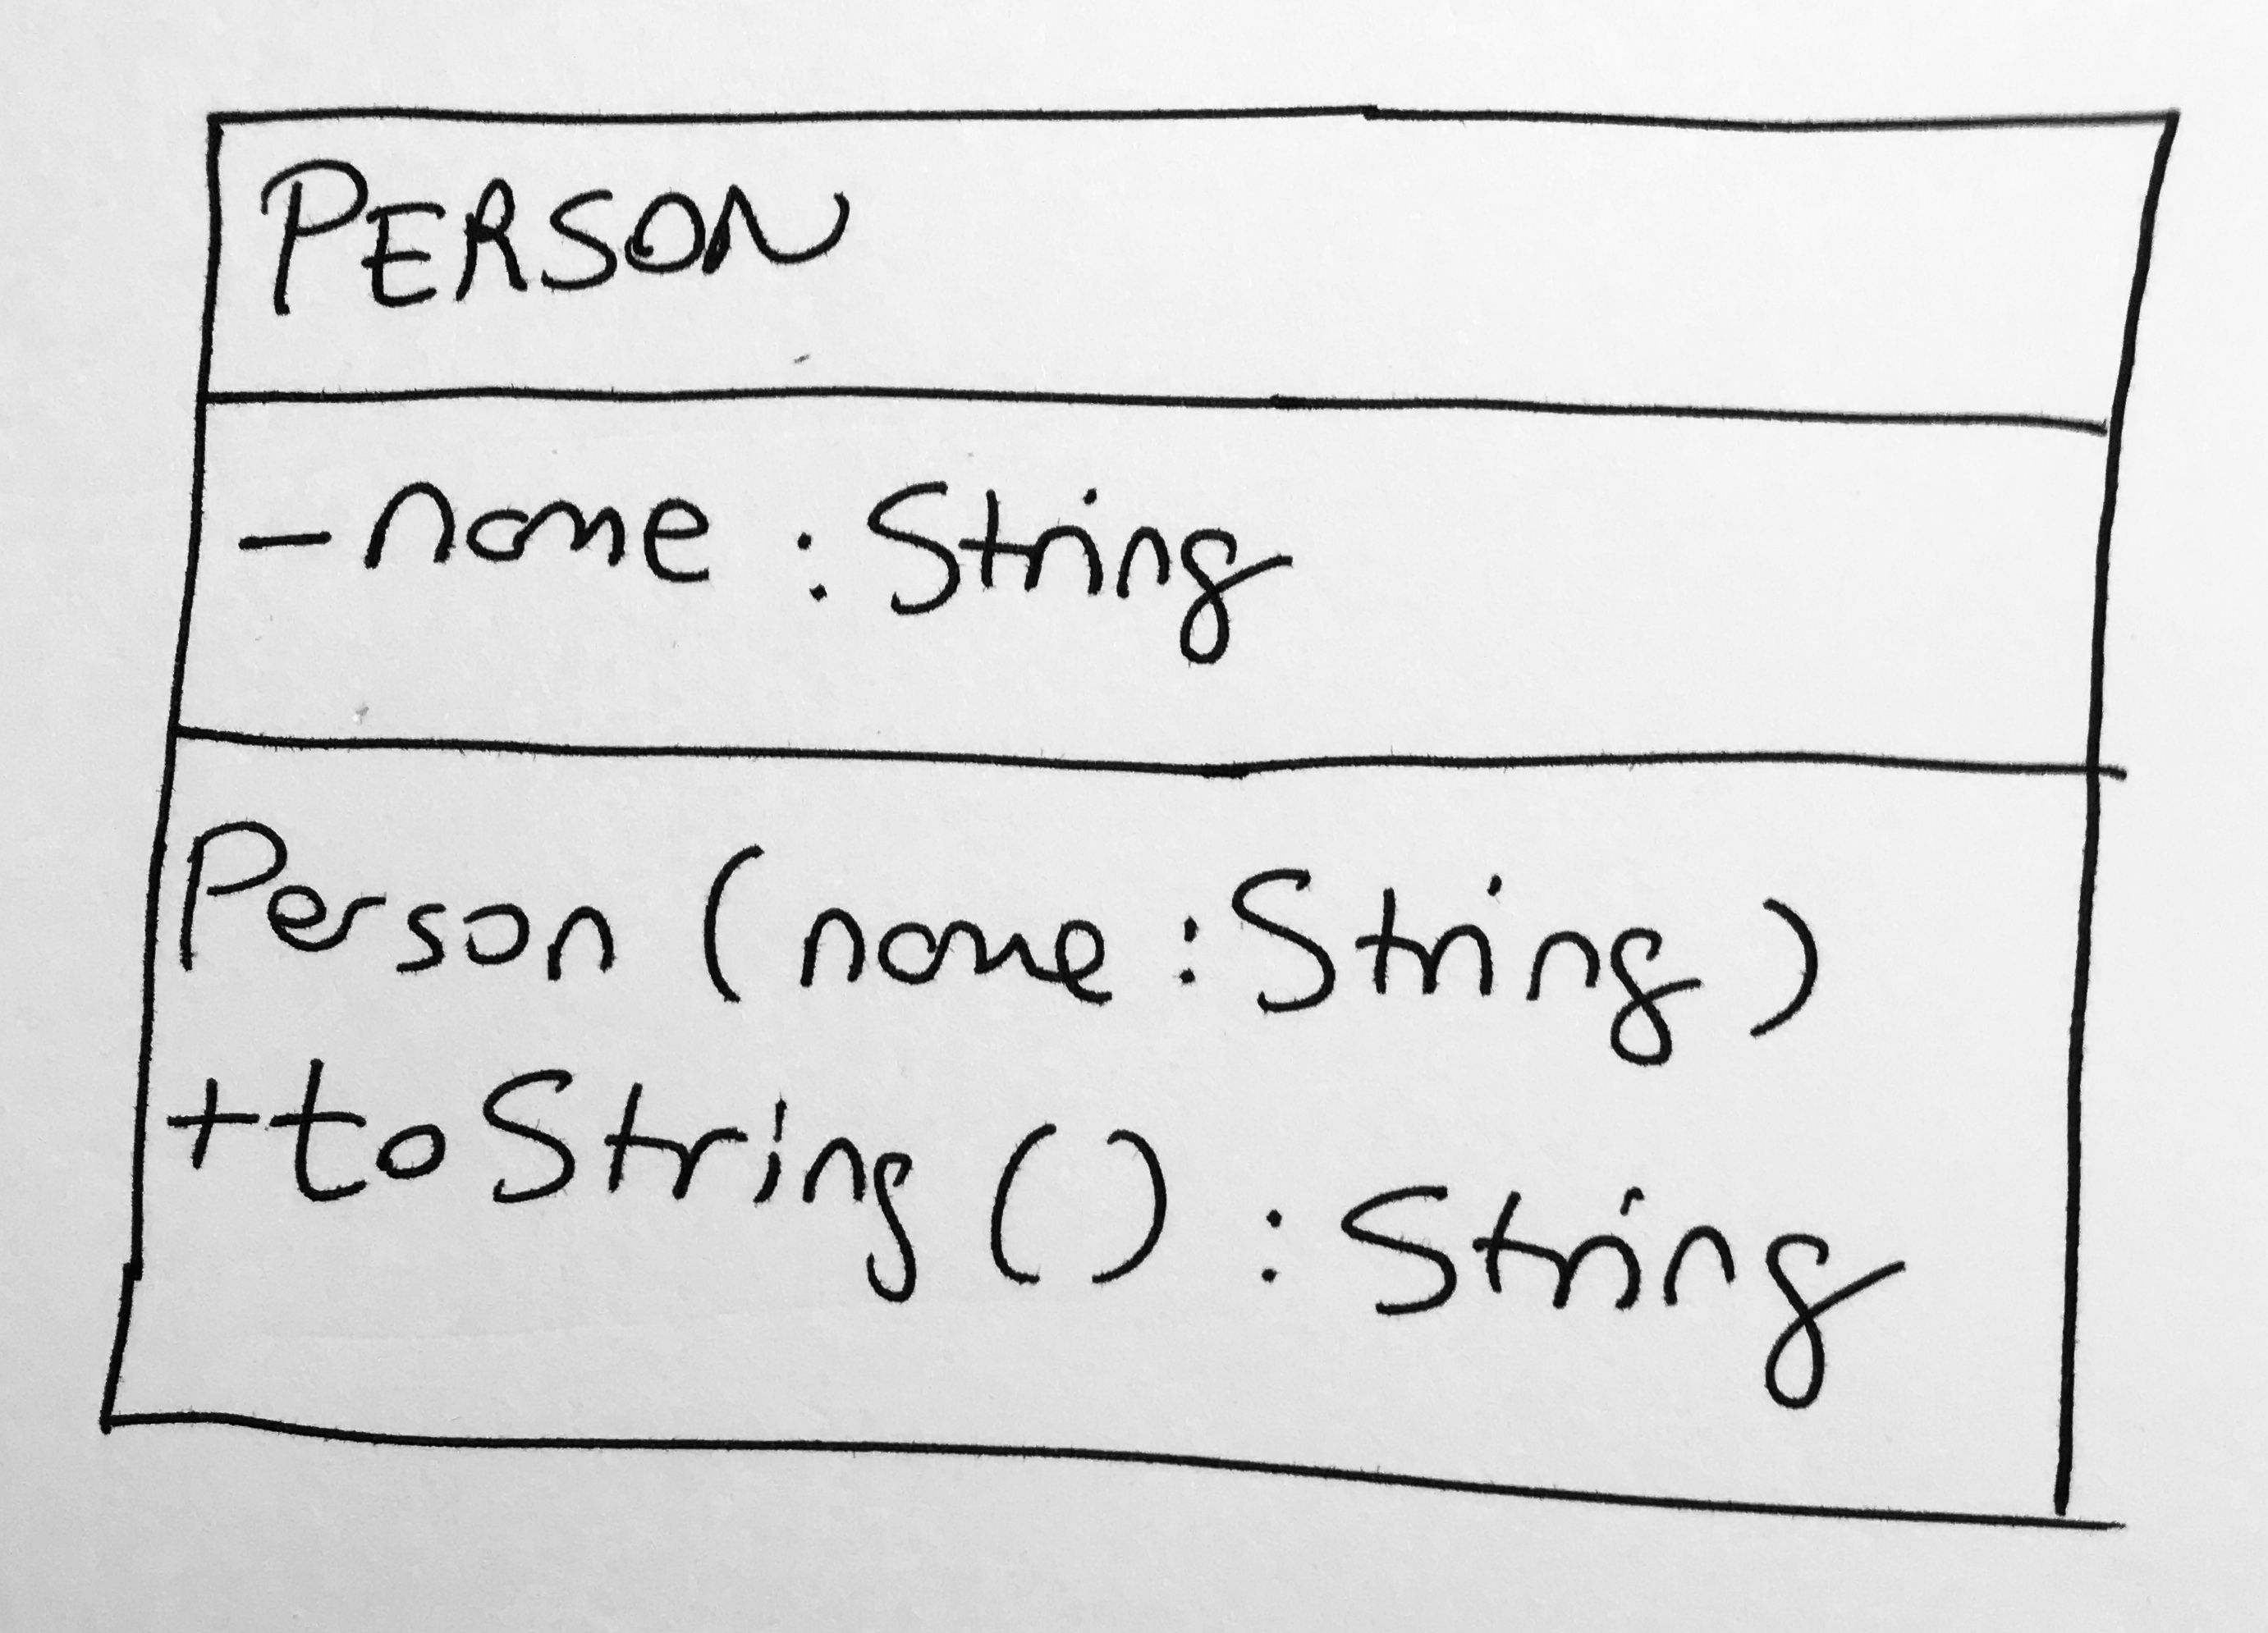 PERSON
- name : String
Person (name : String)
+ toString () : String